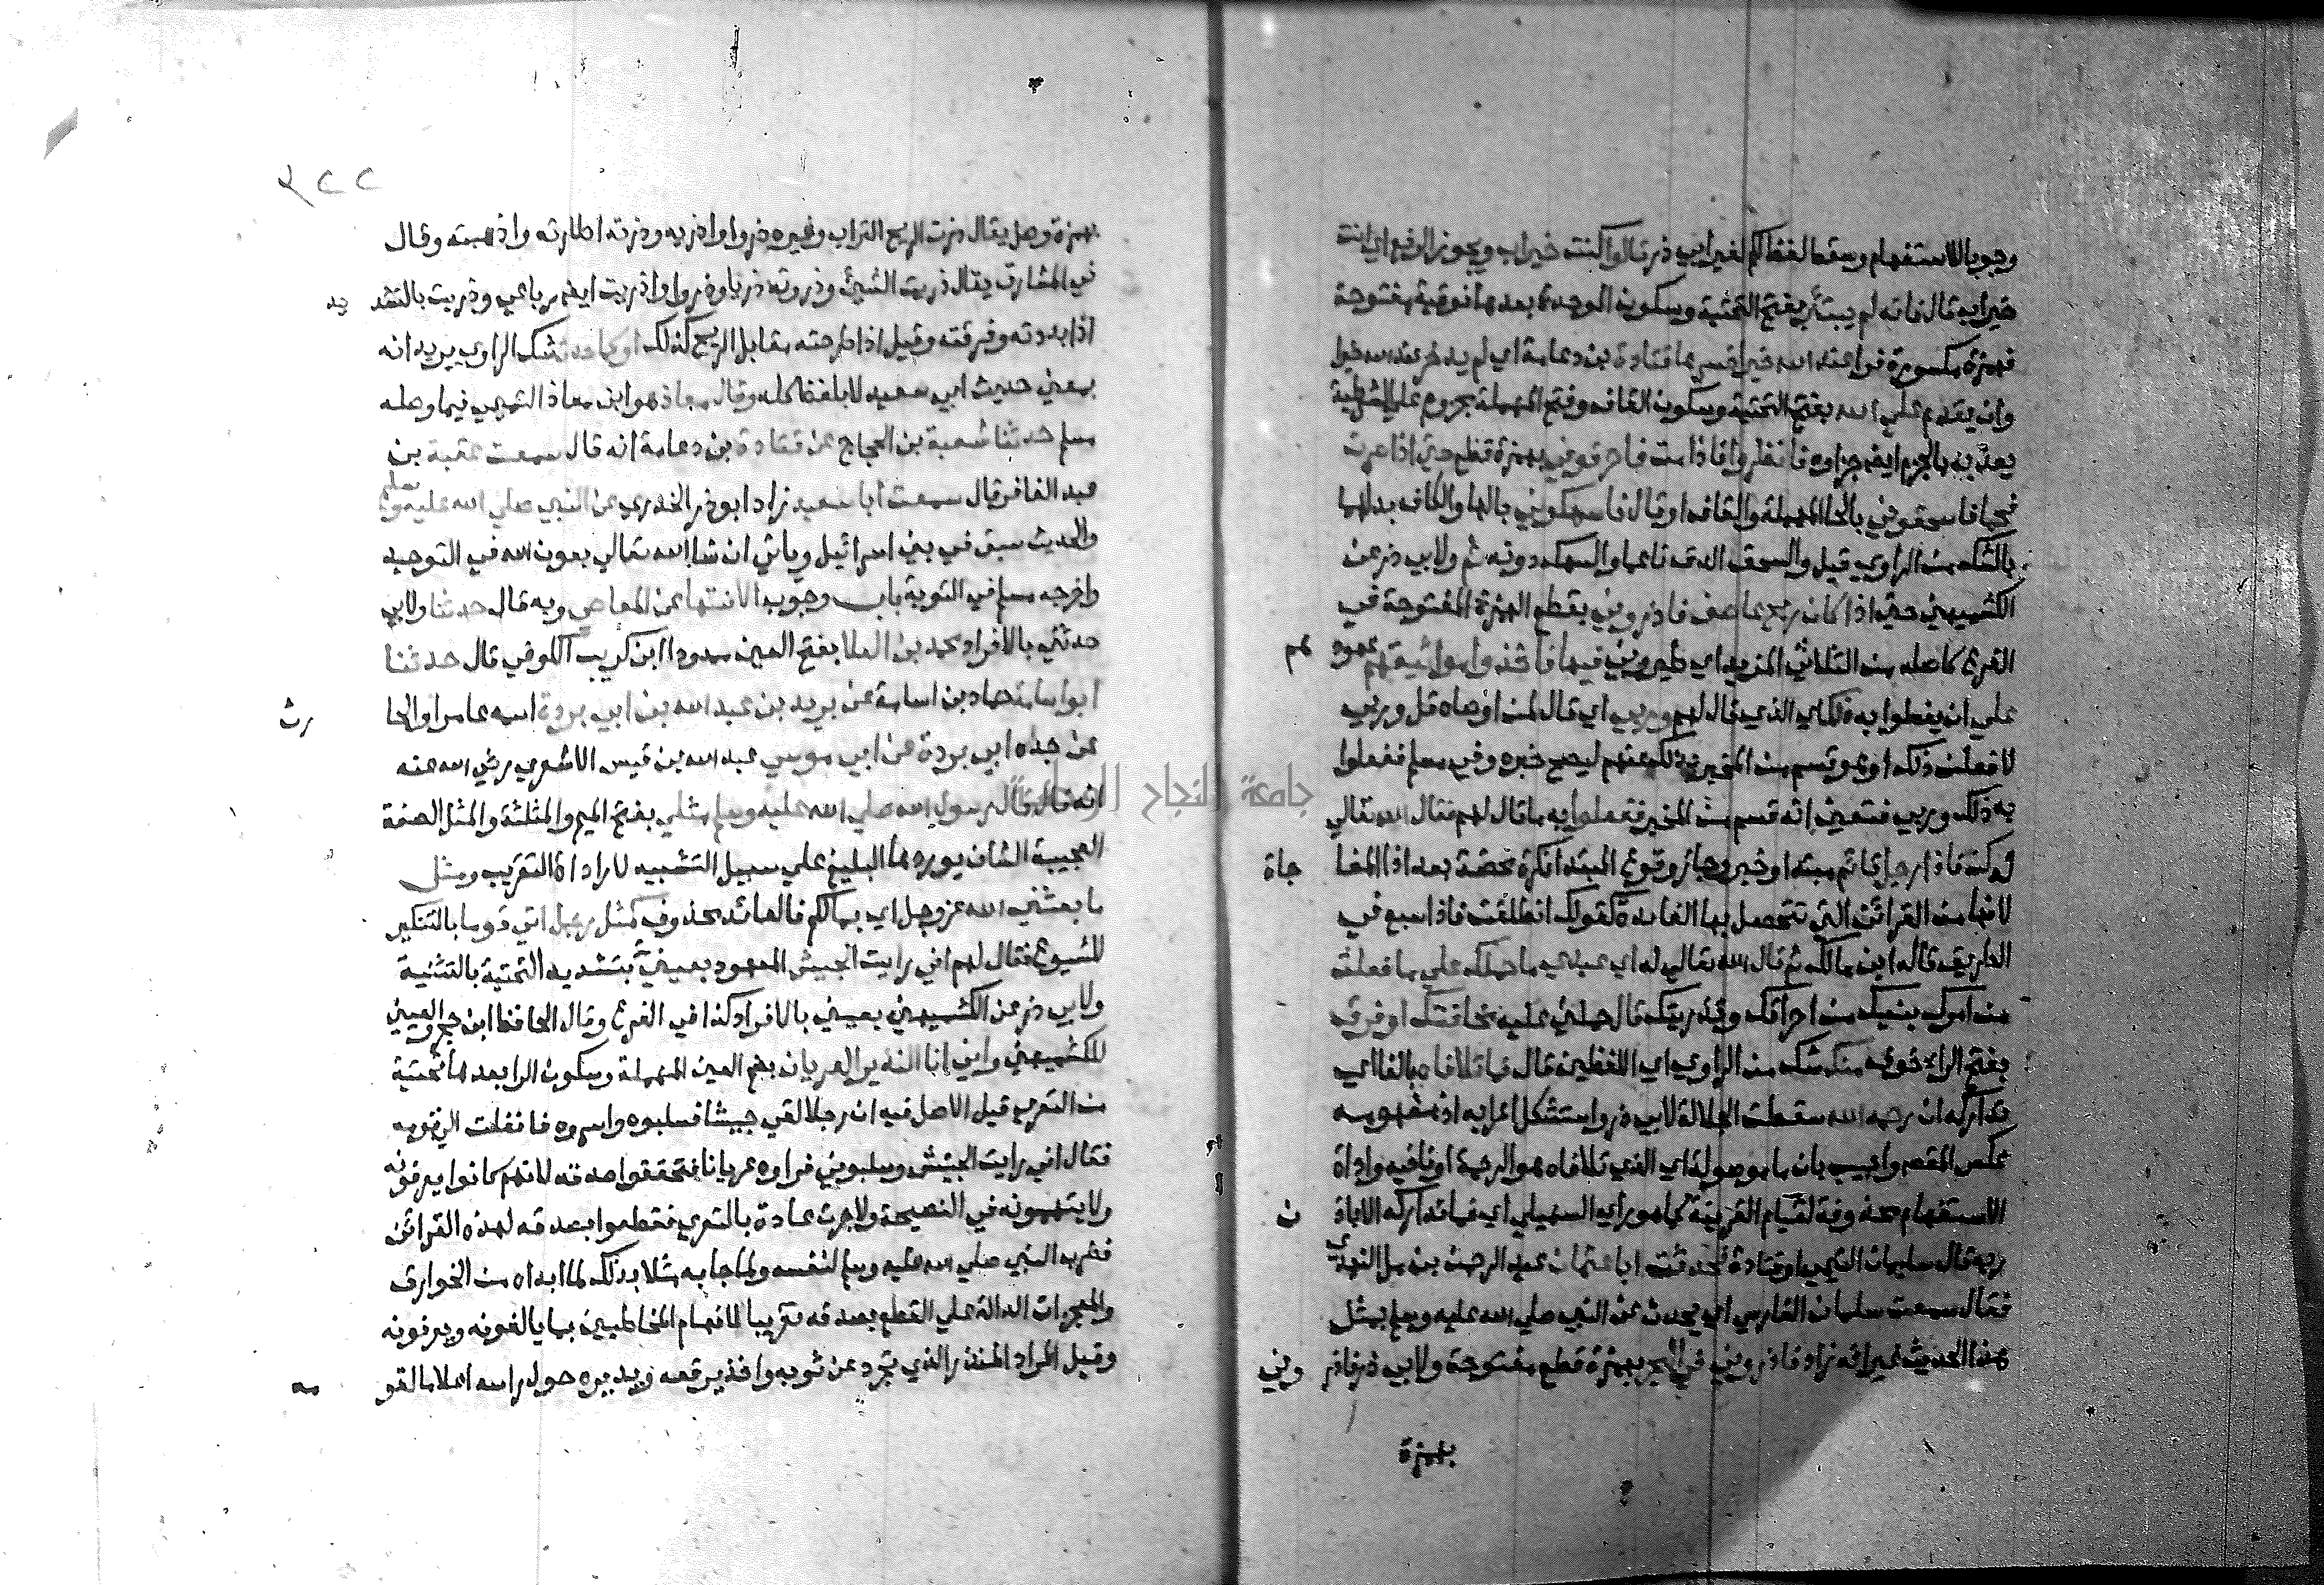 وجوبا للاستفهام وسقط لفظ كم لغير ابي ذر قالوا كنت خير اب ويجوز الرفع اي انت
خير اب قال فانه لم يبتئر بفتح التحتية وسكون الموحدة بعدها فوقية مفتوحة
فهمزة مكسورة فرا عند الله خيرا فسرها قتادة بن دعامة اي لم يدخر عند الله خيرا
وان يقدم علي الله بفتح التحتية وسكون القاف وفتح المهملة مجزوم علي الشرطية
يعذبه بالجزم ايضا جزاوه فانظروا فاذا مت فاحرقوني بهمزة قطع حتي اذا صرت
فحما فاسحقوني بالحا المهملة والقاف او قال فاسهكوني بالها والكاف بدلهما
بالشك من الراوي قيل والسحق الدق ناعما والسهك دونه ثم ولابي ذر عن
الكشميهني حتي اذا كان ريح عاصف فاذروني بقطع الهمزة المفتوحة في
الفرع كاصله من الثلاثي المزيد اي طيروني فيها فاخذ مواثيقهم عهودهم
علي ان يفعلوا به ذلك اي الذي قال لهم وربي اي قال لمن اوصاه قل وربي
لافعلن ذلك او هو قسم من المخبر بذلك عنهم ليصح خبره وفي مسلم ففعلوا
به ذلك وربي فتعين انه قسم من المخبر ففعلوا به ما قال لهم فقال الله تعالي
له كن فاذا رجل قائم مبتدا وخبر وجاز وقوع المبتدا نكرة محضة بعد اذا المفاجاة
لانها من القرائن التي تتحصل بها الفائدة كقولك انطلقت فاذا سبع في
الطريق قاله ابن مالك ثم قال الله تعالي له اي عبدي ما حملك علي ما فعلت
من امرك بنيك من احراقك وتذريتك قال حملني عليه مخافتك او فرق
بفتح الرا خوف منك شك من الراوي اي اللفظين قال فما تلافاه بالفا اي
تداركه ان رحمه الله سقطت الجلالة لابي ذر واستشكل اعرابه اذ مفهومه
عكس المقصود واجيب بان ما موصولة اي الذي تلافاه هو الرحمة او نافية واداة
الاستثنا محذوفة لقيام القرينة كما هو راي السهيلي اي فما تداركه الا بان
رحمه قال سليمان التيمي او قتادة فحدثت ابا عثمان عبد الرحمن بن مل النهدي
فقال سمعت سلمان الفارسي اي يحدث عن النبي صلي الله عليه وسلم بمثل
هذا الحديث غير انه زاد فاذروني في البحر بهمزة قطع مفتوحة ولابي ذر فاذروني
بهمزة
٣٢٢
بهمزة وصل يقال ذرت الريح التراب وغيره ذروا واذرته وذرته اطارته واذهبته وقال
في المشارق يقال ذريت الشيئ وذروته ذريا وذروا واذريت ايضا رباعي وذريت بالتشديد
اذا بددته وفرقته وقيل اذا طرحته مقابل الريح كذلك او كما حدث شك الراوي يريد انه
بمعني حديث ابي سعيد لا بلفظه كله وقال معاذ هو ابن معاذ التميمي فيما وصله
مسلم حدثنا شعبة بن الحجاج عن قتادة بن دعامة انه قال سمعت عقبة بن
عبد الغافر قال سمعت ابا سعيد زاد ابو ذر الخدري عن النبي صلي الله عليه وسلم
والحديث سبق في بني اسرائيل وياتي ان شا الله تعالي بعون الله في التوحيد
واخرجه مسلم في التوبة باب وجوب الانتها عن المعاصي وبه قال حدثنا ولابي
حدثني بالافراد محمد بن العلا بفتح العين ممدودا ابن كريب الكوفي قال حدثنا
ابو اسامة حماد بن اسامة عن بريد بن عبد الله بن ابي بردة اسمه عامر او الحارث
عن جده ابي بردة عن ابي موسي عبد الله بن قيس الاشعري رضي الله عنه
انه قال قال رسول الله صلي الله عليه وسلم مثلي بفتح الميم والمثلثة والمثل الصفة
العجيبة الشان يوردها البليغ علي سبيل التشبيه لارادة التقريب ومثل
ما بعثني الله عز وجل اي به اليكم فالعائد محذوف كمثل رجل اتي قوما بالتنكير
للشيوع فقال لهم اني رايت الجيش المعهود بعيني بتشديد التحتية بالتثنية
ولابي ذر عن الكشميهني بعيني بالافراد كذا في الفرع وقال الحافظ ابن حجر والعيني
للكشميهني واني انا النذير العريان بضم العين المهملة وسكون الرا بعدها تحتية
من التعري قيل الاصل فيه ان رجلا لقي جيشا فسلبوه واسروه فانفلت الي قومه
فقال اني رايت الجيش وسلبوني فراوه عريانا فتحققوا صدقه لانهم كانوا يعرفونه
ولا يتهمونه في النصيحة ولا جرت عادة بالتعري فقطعوا بصدقه لهذه القرائن
فضرب النبي صلي الله عليه وسلم لنفسه ولما جا به مثلا بذلك لما ابداه من الخوارق
والمعجزات الدالة علي القطع بصدقه تقريبا لافهام المخاطبين بما يالفونه ويعرفونه
وقيل المراد المنذر الذي تجرد عن ثوبه واخذ يرفعه ويديره حول راسه اعلاما لقومه
جامعة النجاح الوطنية